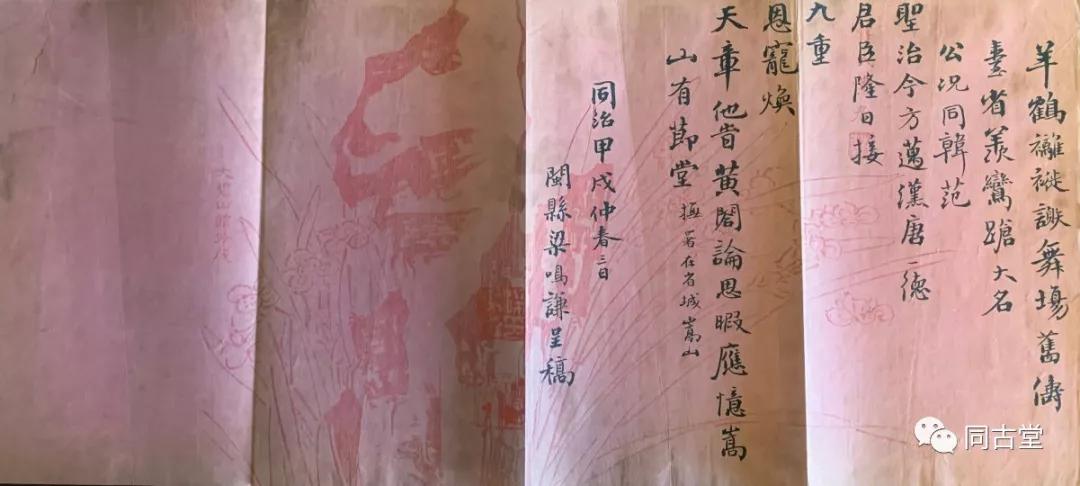 羊鶴襬褷謝舞場舊儔
臺省羡鸞蹌大名
公況同韓范
聖治今方邁漢唐一德
君臣隆日接
九重
恩寵煥
天章他旹黃閣論思暇應憶嵩
山有節堂撫署在省城嵩山
同治甲戌仲春三日
閩縣梁鳴謙呈稿
同古堂